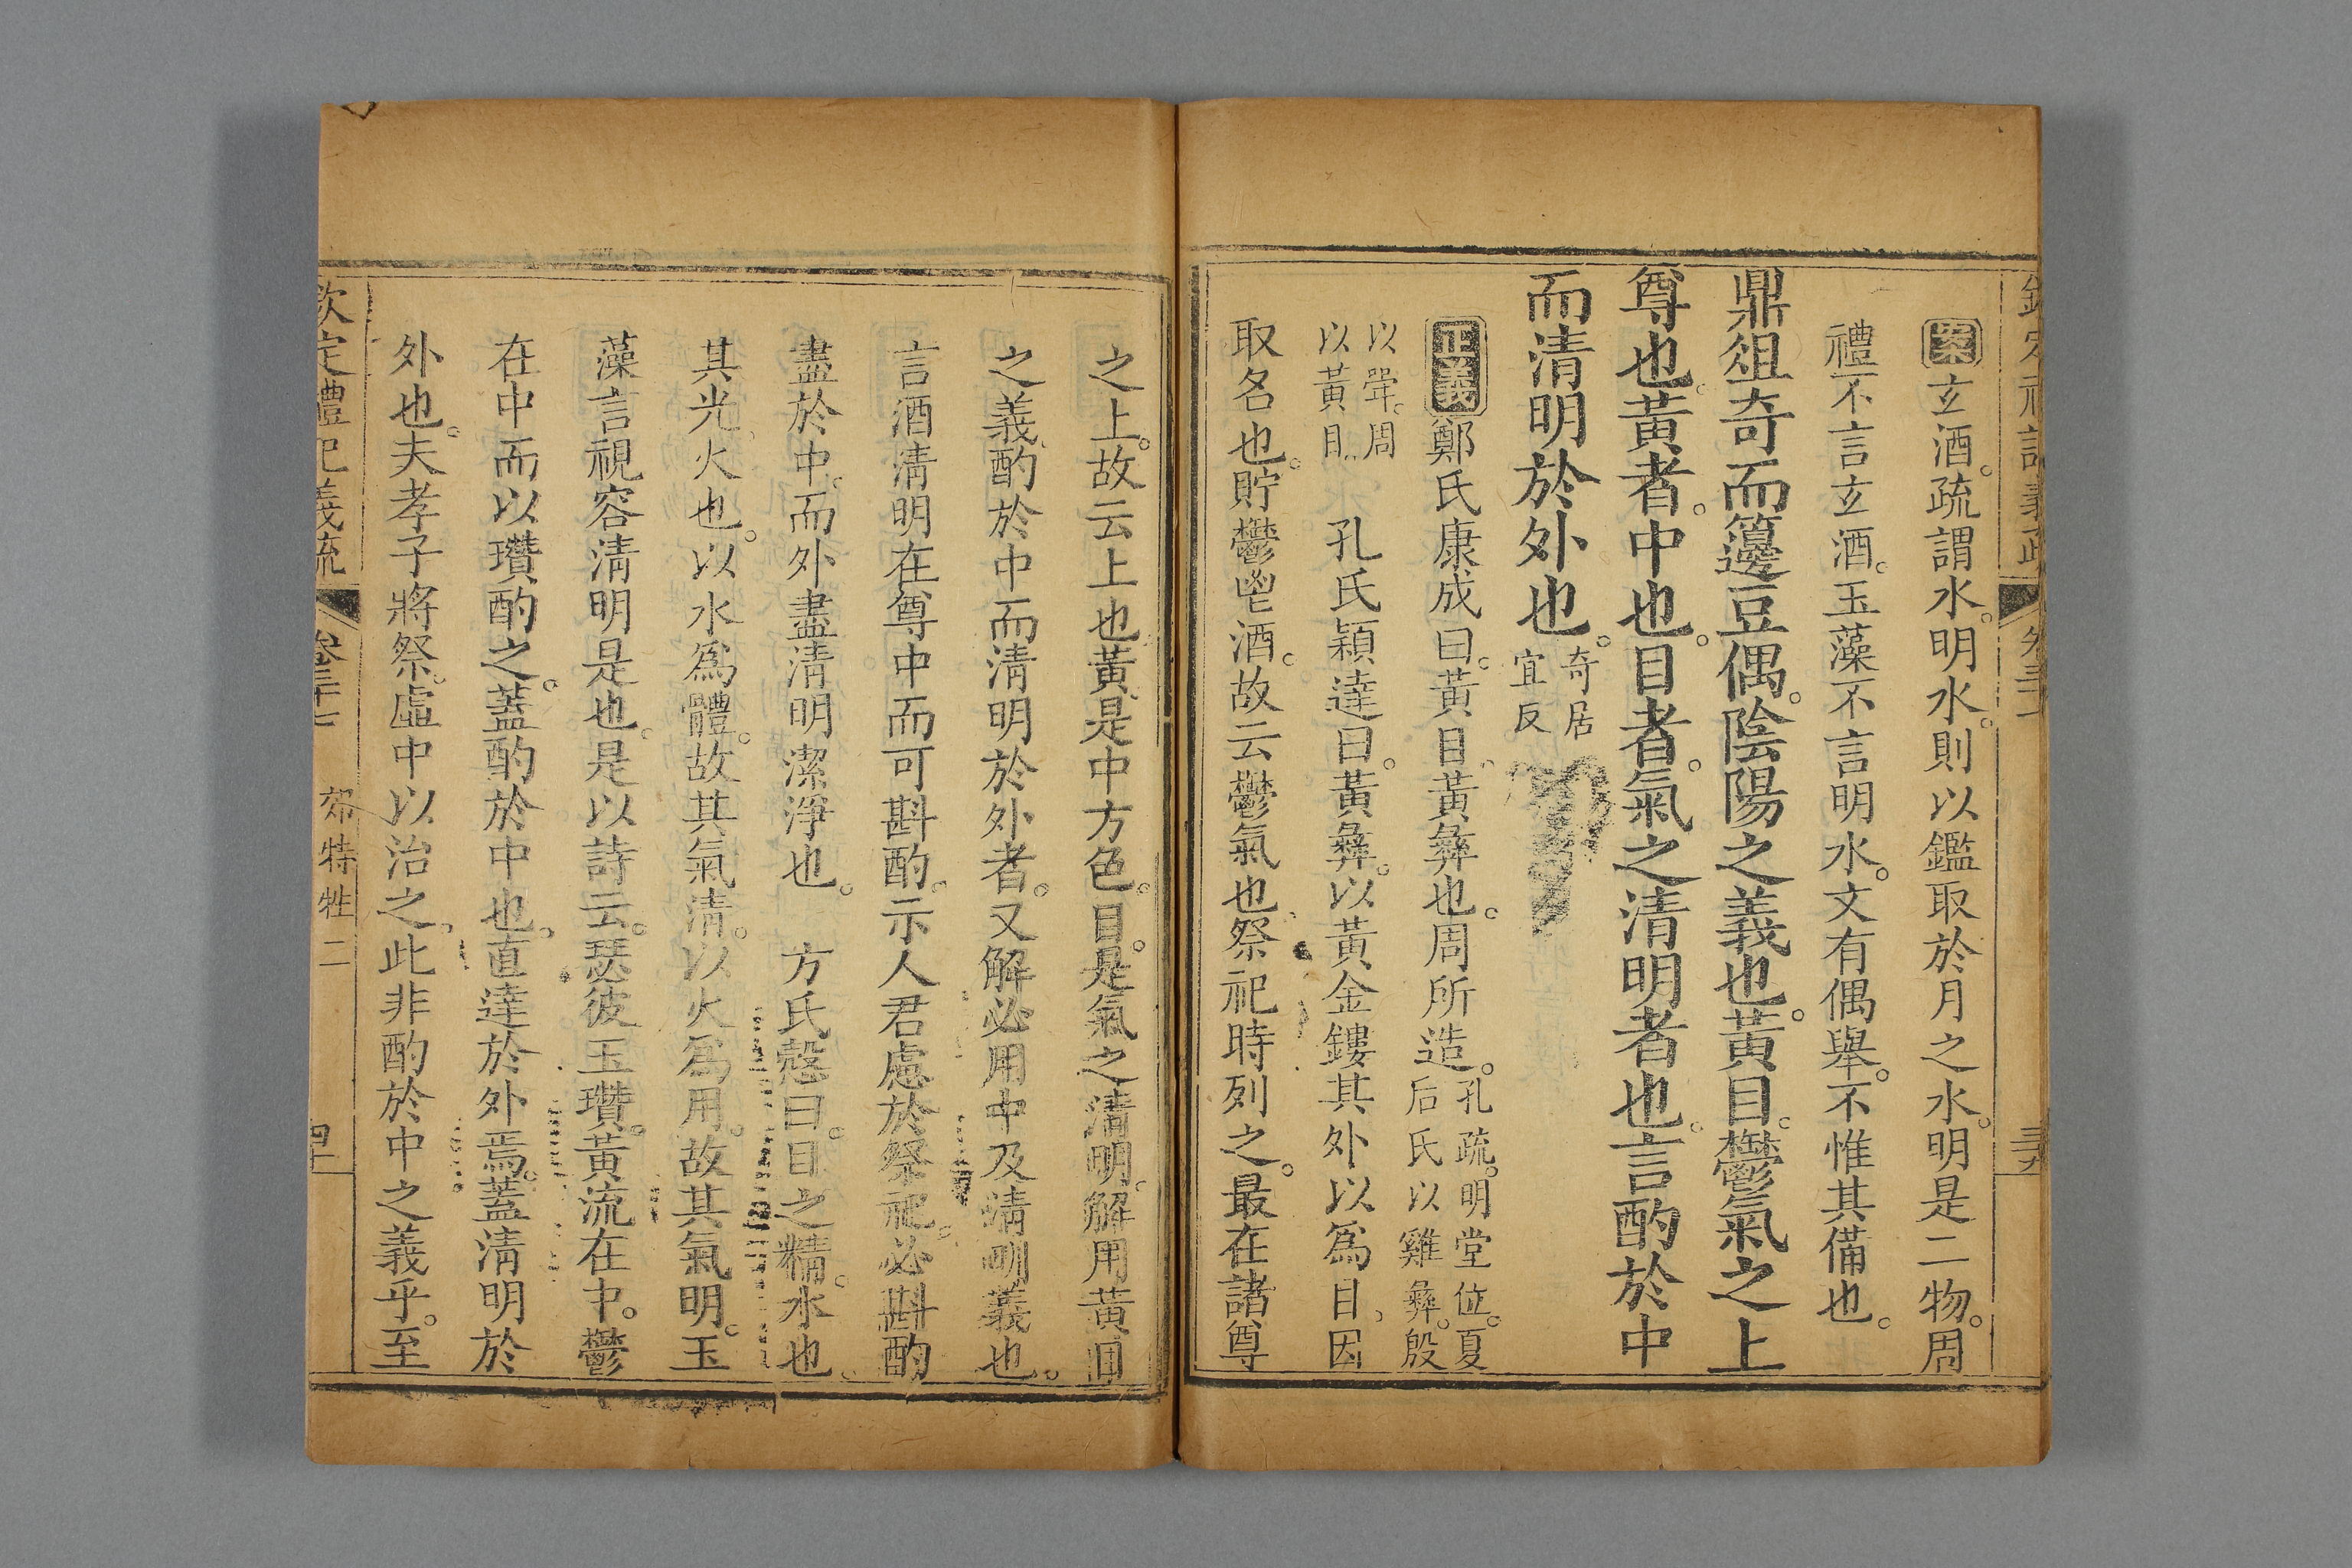 欽定禮記義疏 卷三十七 三九
案玄酒。疏謂水。明水。則以鑑取於月之水。明是二物。周
禮不言玄酒。玉藻不言明水。文有偶舉。不惟其備也。
鼎俎奇而籩豆偶。陰陽之義也。黃目。鬱氣之上
尊也。黃者。中也。目者。氣之清明者也。言酌於中
而清明於外也。奇居宜反
正義鄭氏康成曰。黃目。黃彝也。周所造。孔疏。明堂位。夏后氏以雞彝。殷
以斝。周以黃目。 孔氏穎達曰。黃彝。以黃金鏤其外以爲目、因
取名也。貯鬱鬯酒。故云鬱氣也、祭祀時列之。最在諸尊
之上。故云上也。黃、是中方色。目。是氣之清明。解用黃目
之義。酌於中而清明於外者。又解必用中及清明義也。
言酒清明在尊中而可斟酌。示人君慮於祭祀。必斟酌
盡於中。而外盡清明潔淨也。 方氏慤曰。目之精。水也。
其光、火也。以水爲體。故其氣清。以火爲用。故其氣明。玉
藻言視容清明是也。是以詩云。瑟彼玉瓚。黃流在中。鬱
在中而以瓚酌之。蓋酌於中也。直達於外焉。蓋清明於
外也。夫孝子將祭。虛中以治之、此非酌於中之義乎。至
欽定禮記義疏 卷三十七 郊特牲二 四十